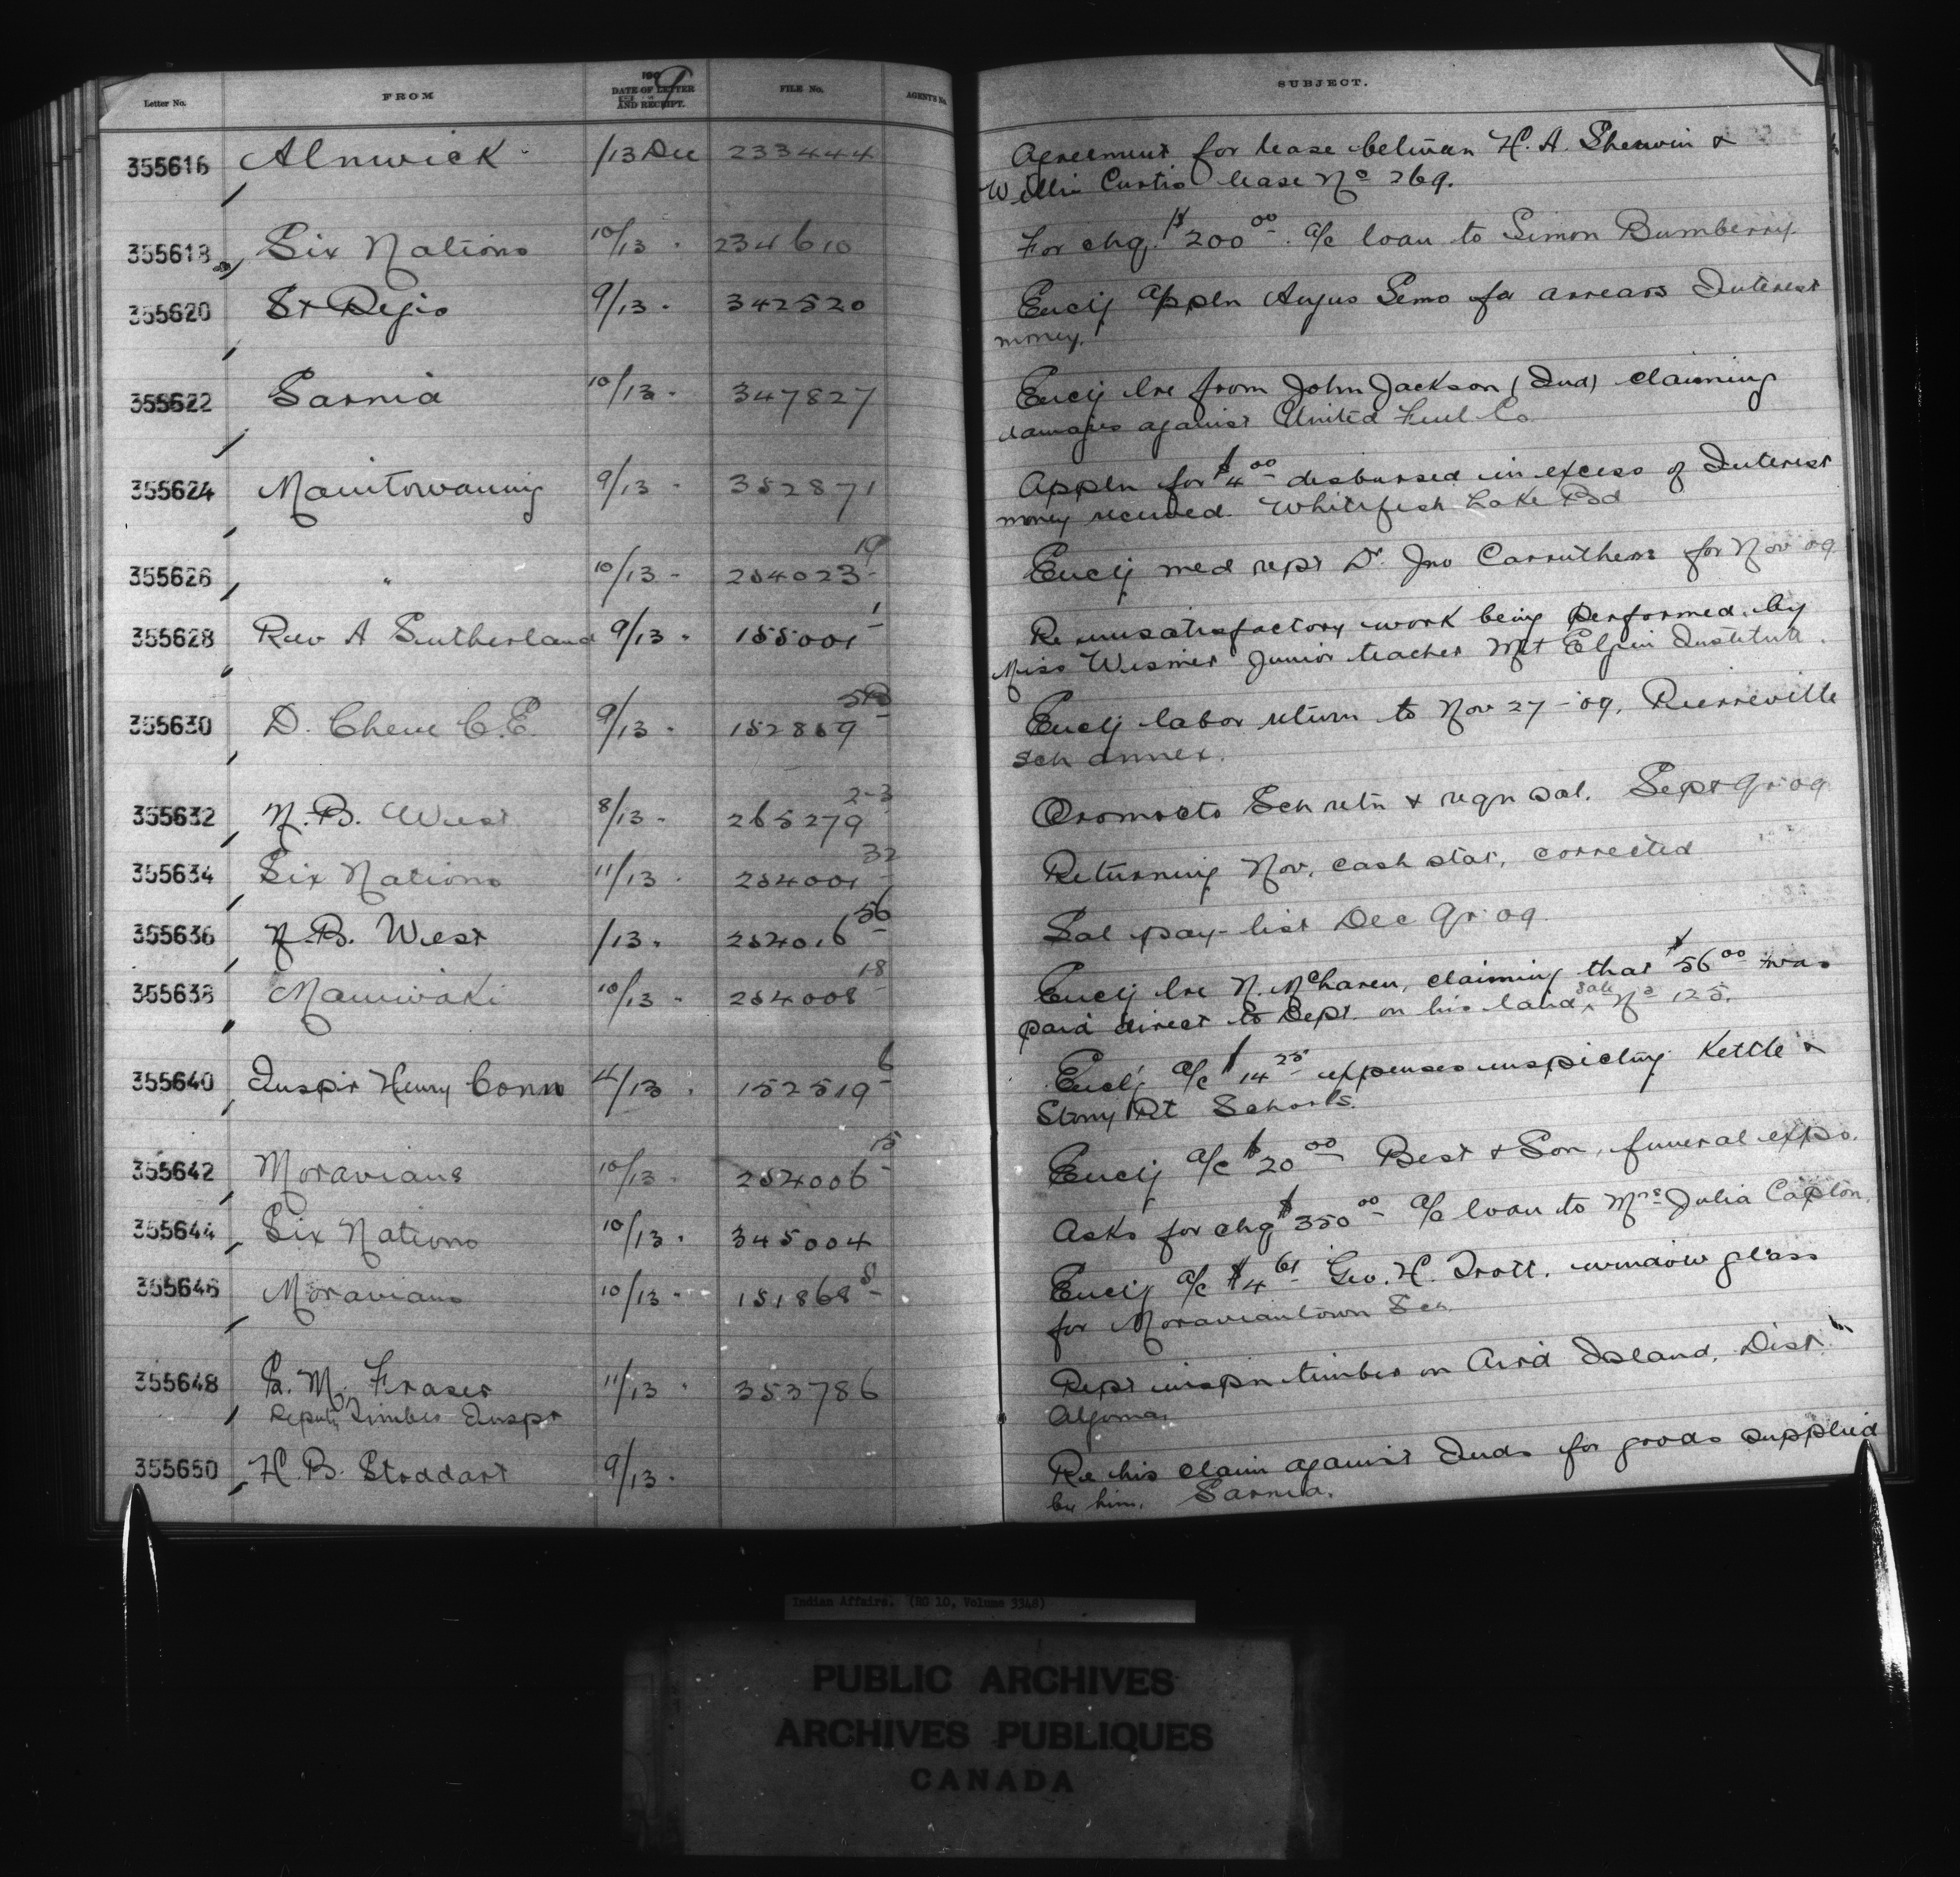 Letter No. FROM 1909 DATE OF LETTER AND RECEIPT. FILE No. AGENTS No. SUBJECT.
355616 Alnwick /13 Dec 233444 Agreement for lease between H. A. Sherwin &
Willie Curtis lease No 269.
355618 Six Nations 10/13 . 234610 For chq. $200 00 a/c loan to Simon Bumberry
355620 St Regis 9/13 . 342520 Enclg appln Angus Semo for arrears Interest
money.
355622 Sarnia 10/13 - 347827 Enclg lre from John Jackson (Ind) claiming
damages against United Fuel Co
355624 Manitowaning 9/13 - 352871 Appln for $4 00 disbursed in excess of Interest
money received. Whitefish Lake Bd
355626 " 10/13 - 254023-19 Enclg med rept Dr. Jno Carruthers for Nov 09
355628 Rev A Sutherland 9/13 - 155001-1 Re unsatisfactory work being performed by
Miss Wismer Junior teacher Mt Elgin Institute.
355630 D. Chene C.E. 9/13 - 152859 Enclg labor return to Nov 27-09, Pierreville
Sch annex.
355632 N.B. West 8/13 - 265279 2-3 Oromocto Sch retn & reqn sal. Sept Qr 09
355634 Six Nations 11/13 - 254001-32 Returning Nov. cash stat. corrected
355636 N.B. West /13 . 254016-56 Sal pay-list Dec Qr 09.
355638 Maniwaki 10/13 - 254008-18 Enclg lre N. McLaren, claiming that $56 00 was
paid direct to Dept. on his land sale No 125.
355640 Inspr Henry Conn 4/13 . 152519-6 Enclg a/c $14 25 expenses inspecting Kettle &
Stony Pt Schools.
355642 Moravians 10/13 - 254006-15 Enclg a/c $20 00 Best & Son, funeral exps.
355644 Six Nations 10/13 . 345004 Asks for chq $350 00 a/c loan to Mrs Julia Capton.
355646 Moravians 10/13 - 151868-8 Enclg a/c $4 61 Geo. H. Trott. window glass
for Moraviantown Sch.
355648 Fraser 11/13 - 353786 Rept inspn timber on Aird Island, Dist.
Deputy Timber Inspr Algoma.
355650 H. B. Stoddart 9/13 . Re his claim against Inds for goods supplied
by him. Sarnia.
Indian Affairs. (RG 10, Volume 3348)
PUBLIC ARCHIVES
ARCHIVES PUBLIQUES
CANADA